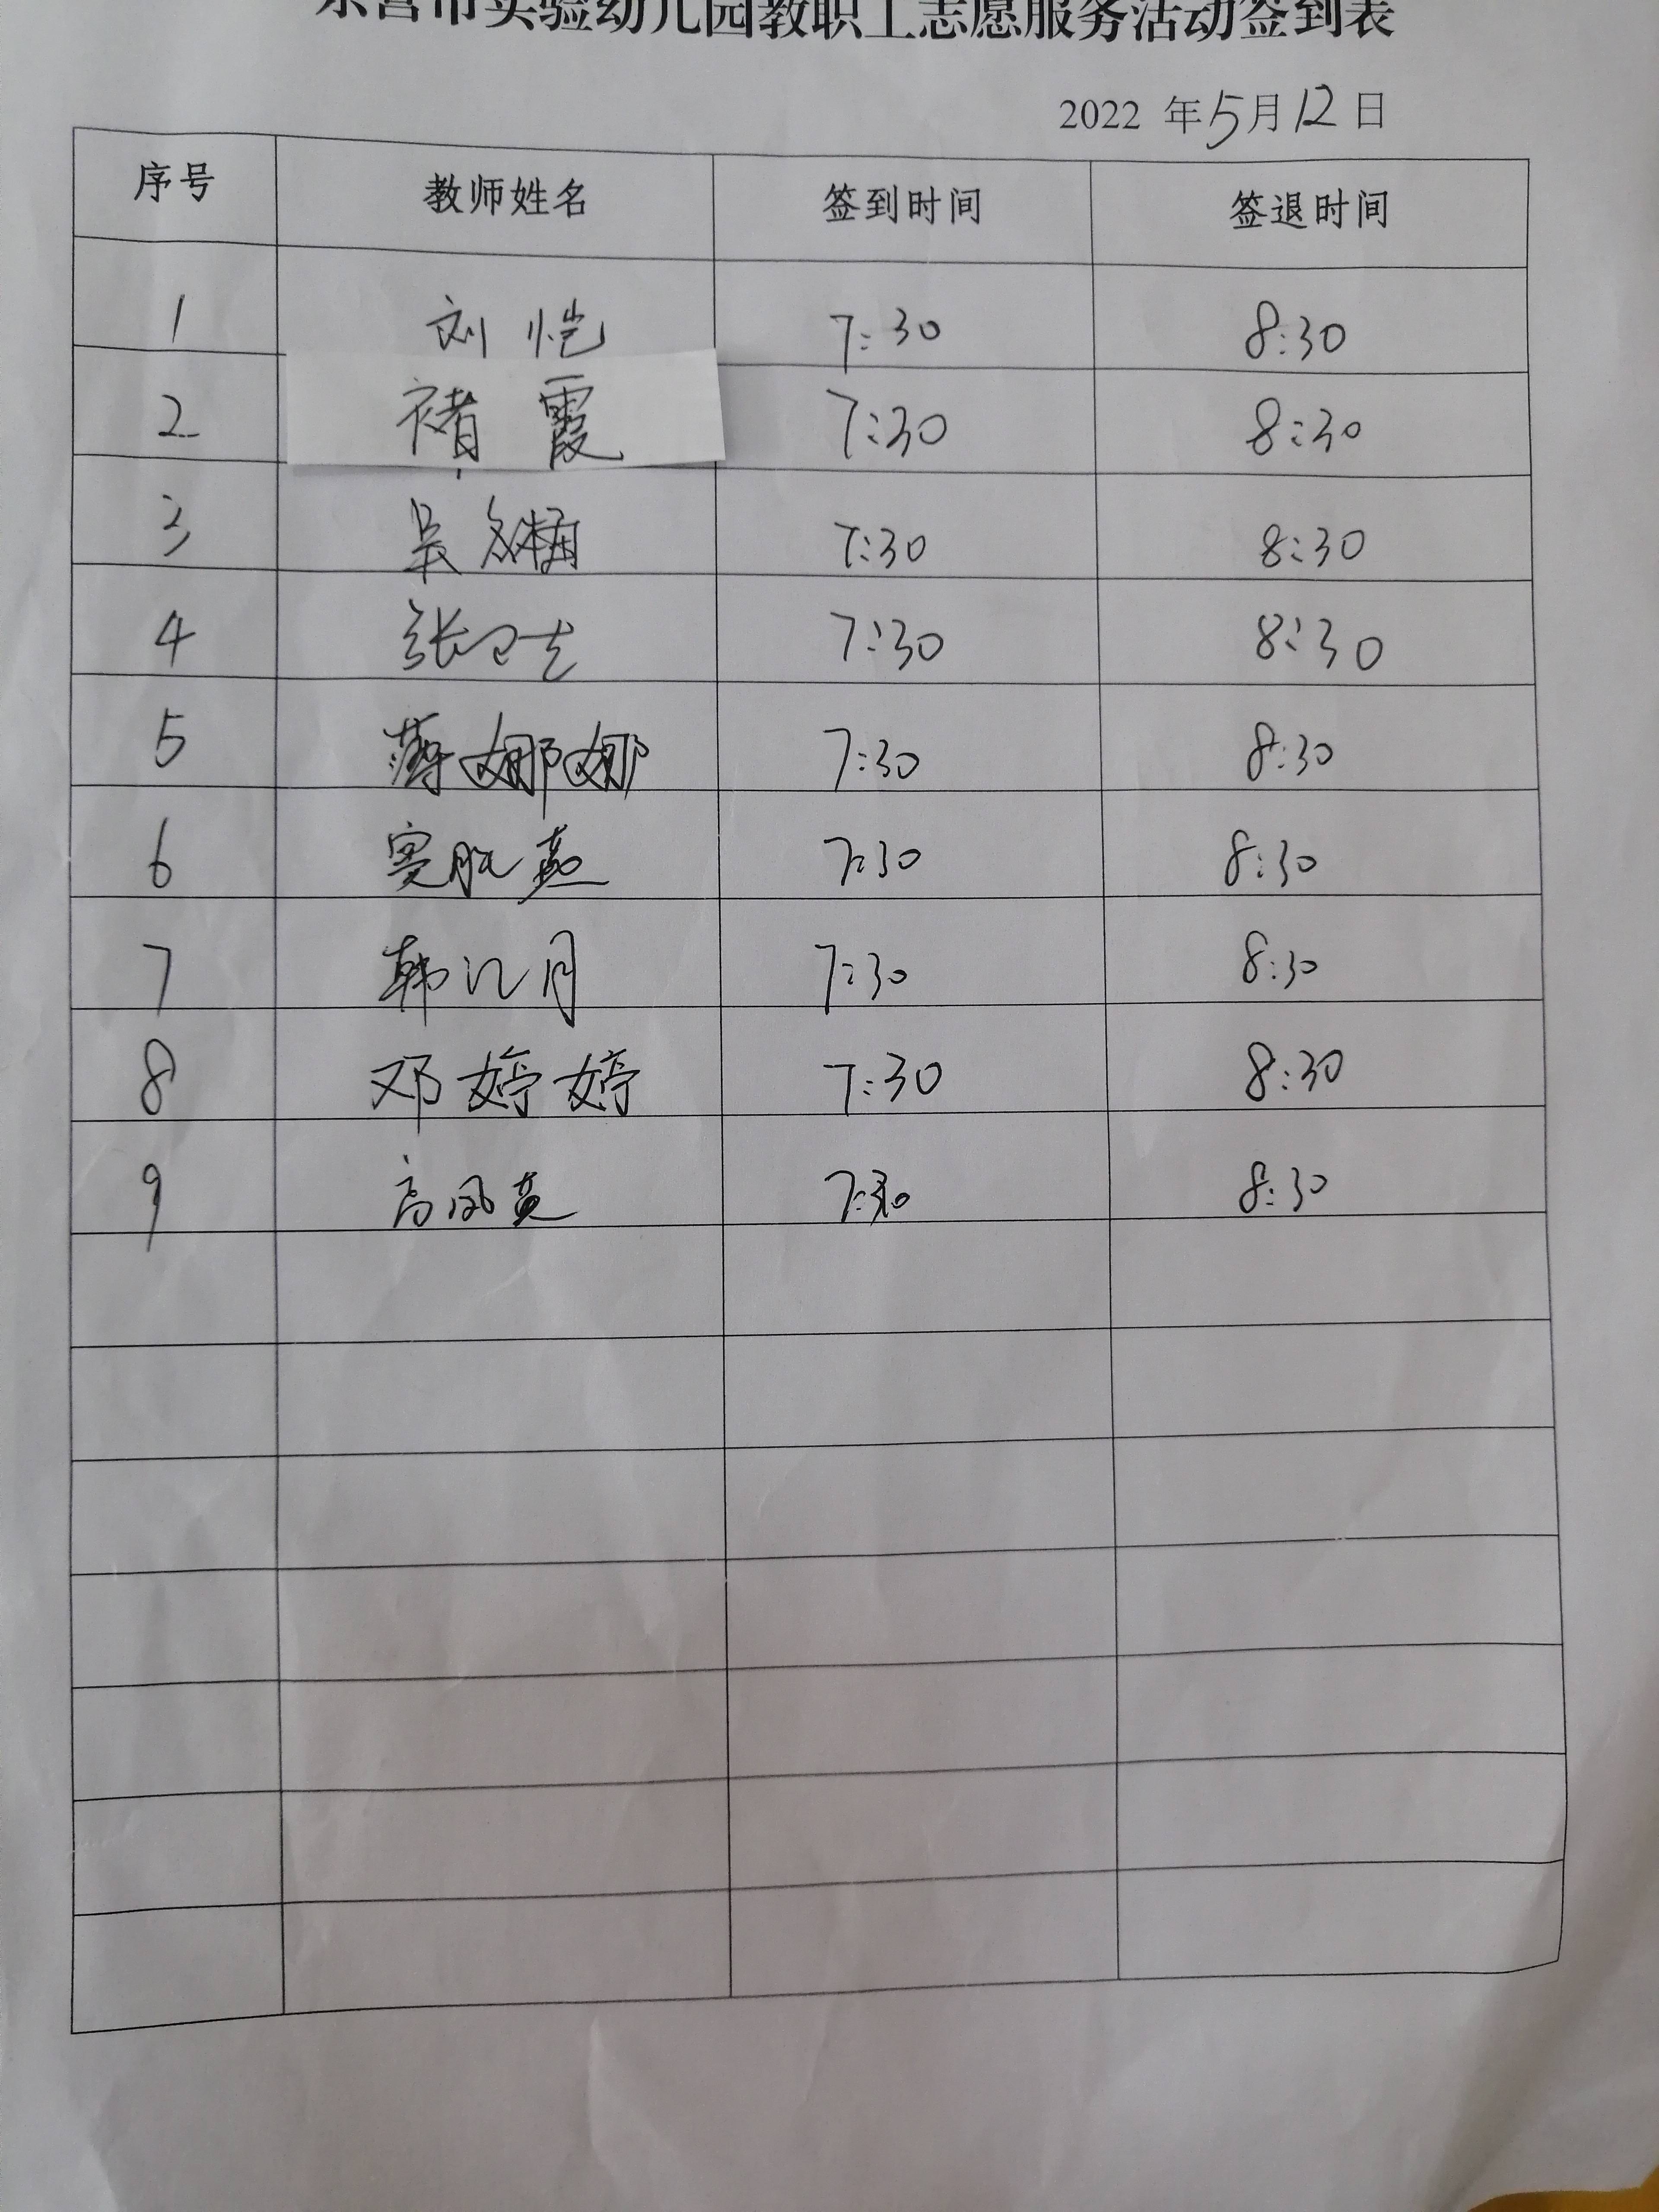 东营市实验幼儿园教职工志愿服务活动签到表
2022 年5月12日
序号 教师姓名 签到时间 签退时间
1 刘恺 7:30 8:30
2 褚霞 7:30 8:30
3 吴冬梅 7:30 8:30
4 张卫 7:30 8:30
5 薄娜娜 7:30 8:30
6 燕 7:30 8:30
7 韩江月 7:30 8:30
8 邓婷婷 7:30 8:30
9 高凤英 7:30 8:30